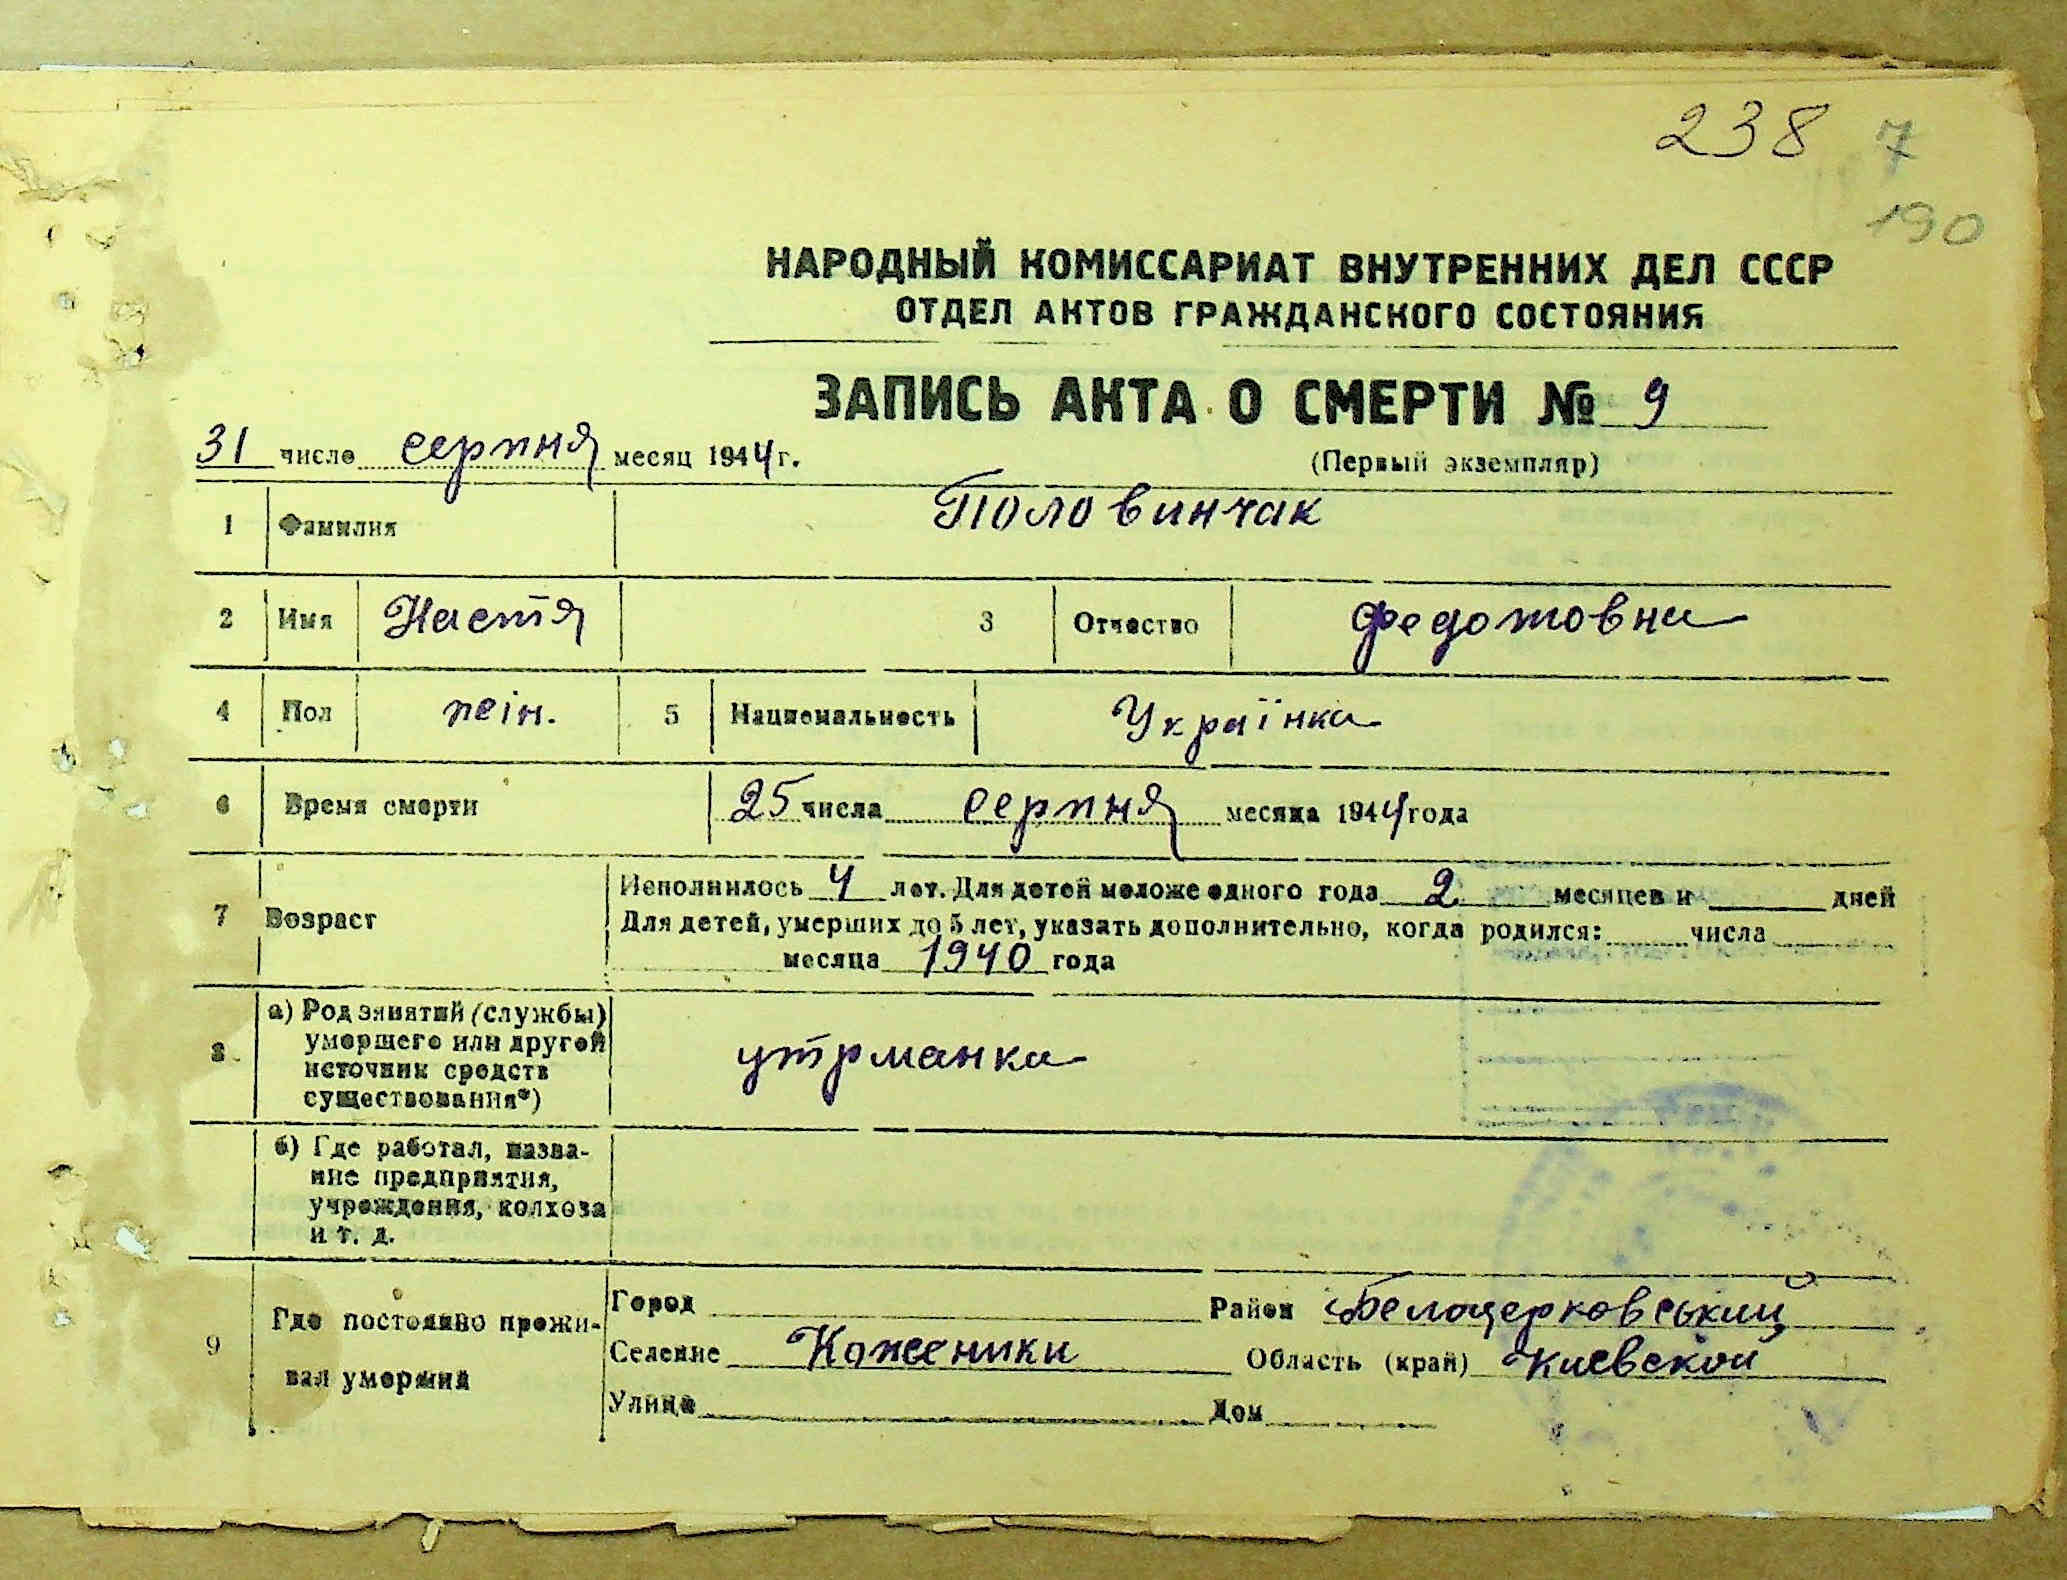 238 7
190
НАРОДНЫЙ КОМИССАРИАТ ВНУТРЕННИХ ДЕЛ СССР
ОТДЕЛ АКТОВ ГРАЖДАНСКОГО СОСТОЯНИЯ
ЗАПИСЬ АКТА О СМЕРТИ № 9
31 число серпня месяц 1944 г.
(Первый экземпляр)
1 Фамилия Половинчак
2 Имя Настя 3 Отчество Федотовна
4 Пол жін. 5 Национальность Українка
6 Время смерти 25 числа серпня месяца 1944 года
7 Возраст
Исполнилось 4 лет. Для детей моложе одного года 2 месяцев и дней
Для детей, умерших до 5 лет, указать дополнительно, когда родился: числа
месяца 1940 года
8 а) Род занятий (службы)
умершего или другой
источник средств
существования*)
утрманка
б) Где работал, назва-
ние предприятия,
учреждения, колхоза
и т. д.
9 Где постоянно прожи-
вал умерший
Город Район Белоцерковський
Селение Коженики Область (край) Киевской
Улица Дом